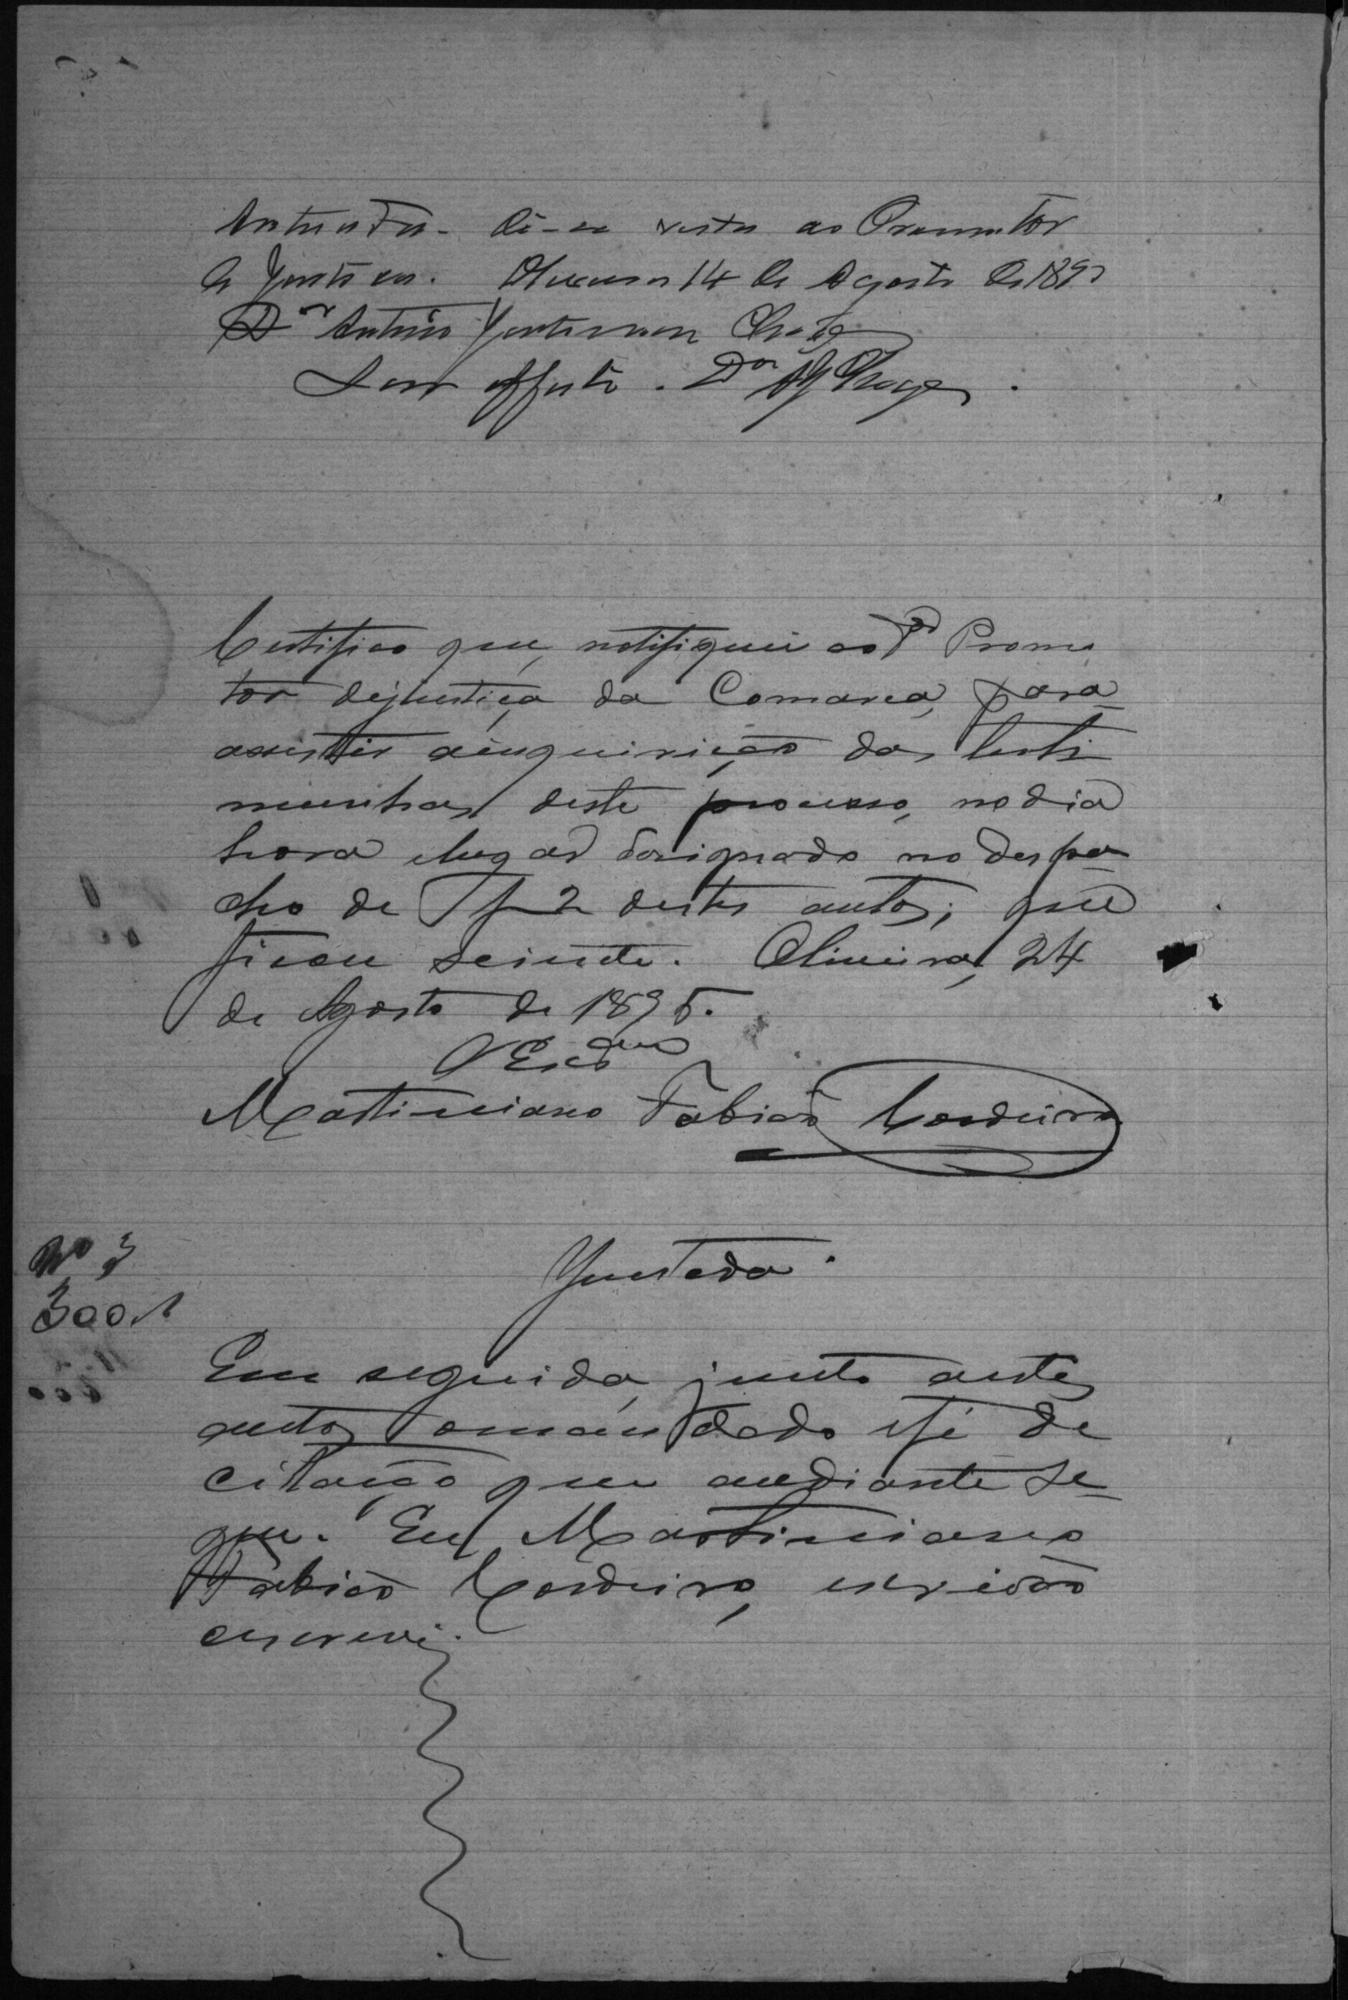 Autuada. Dê-se vista ao Promotor
de Justiça. Oliveira 14 de Agosto de 1895
Dor Antonio Justiniano Chagas
Sem effeito. Dor AJChagas.
Certifico que, notifiquei ao Promo
tor dejustiça da Comarca, para
assistir ainquirição das teste
munhas deste processo, nodia
hora elugar designado no despa-
cho de f 2 destes autos; que
ficou sciente. Oliveira, 24
de Agosto de 1895.
O Escram
Martiniano Fabião Cordeiro
Juntada.
No 3
300
Em seguida, junto aestes
autos omandado efé de
citação que adiante se-
gue. Eu Martiniano
Fabião Cordeiro, escrivão
escrevi.